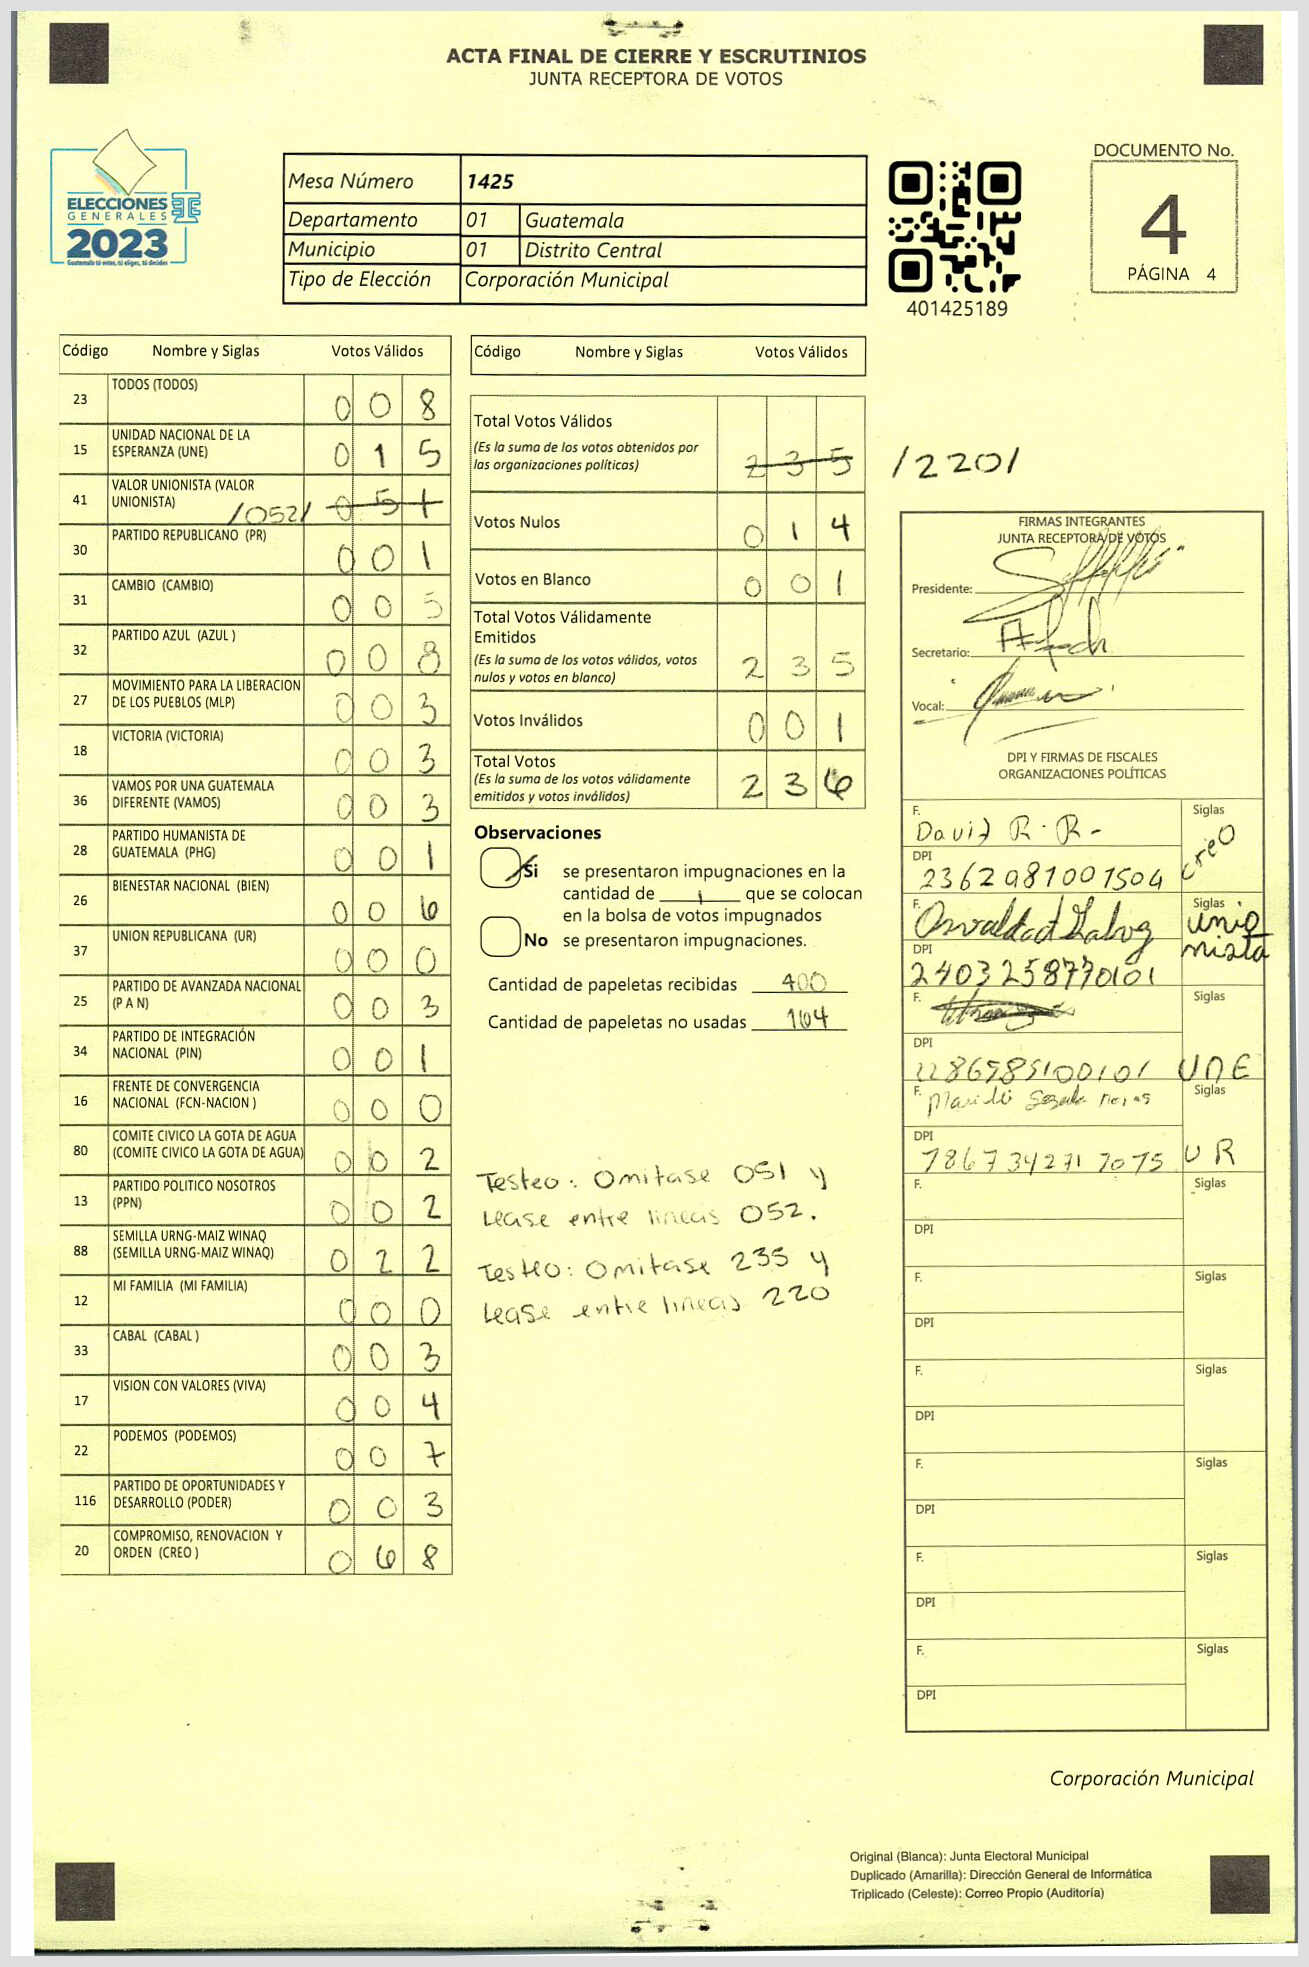 ACTA FINAL DE CIERRE Y ESCRUTINIOS
JUNTA RECEPTORA DE VOTOS
ELECCIONES
GENERALES
2023
Mesa Número 1425
Departamento 01 Guatemala
Municipio 01 Distrito Central
Tipo de Elección Corporación Municipal
401425189
DOCUMENTO No.
4
PÁGINA 4
Código Nombre y Siglas Votos Válidos
23 TODOS (TODOS) 0 0 8
15 UNIDAD NACIONAL DE LA
ESPERANZA (UNE) 0 1 5
41 VALOR UNIONISTA (VALOR
UNIONISTA) /052/ 0 5 1
30 PARTIDO REPUBLICANO (PR) 0 0 1
31 CAMBIO (CAMBIO) 0 0 5
32 PARTIDO AZUL (AZUL ) 0 0 8
27 MOVIMIENTO PARA LA LIBERACION
DE LOS PUEBLOS (MLP) 0 0 3
18 VICTORIA (VICTORIA) 0 0 3
36 VAMOS POR UNA GUATEMALA
DIFERENTE (VAMOS) 0 0 3
28 PARTIDO HUMANISTA DE
GUATEMALA (PHG) 0 0 1
26 BIENESTAR NACIONAL (BIEN) 0 0 6
37 UNION REPUBLICANA (UR) 0 0 0
25 PARTIDO DE AVANZADA NACIONAL
(P A N) 0 0 3
34 PARTIDO DE INTEGRACIÓN
NACIONAL (PIN) 0 0 1
16 FRENTE DE CONVERGENCIA
NACIONAL (FCN-NACION ) 0 0 0
80 COMITE CIVICO LA GOTA DE AGUA
(COMITE CIVICO LA GOTA DE AGUA) 0 0 2
13 PARTIDO POLITICO NOSOTROS
(PPN) 0 0 2
88 SEMILLA URNG-MAIZ WINAQ
(SEMILLA URNG-MAIZ WINAQ) 0 2 2
12 MI FAMILIA (MI FAMILIA) 0 0 0
33 CABAL (CABAL ) 0 0 3
17 VISION CON VALORES (VIVA) 0 0 4
22 PODEMOS (PODEMOS) 0 0 7
116 PARTIDO DE OPORTUNIDADES Y
DESARROLLO (PODER) 0 0 3
20 COMPROMISO, RENOVACION Y
ORDEN (CREO ) 0 6 8
Código Nombre y Siglas Votos Válidos
Total Votos Válidos
(Es la suma de los votos obtenidos por
las organizaciones políticas) 2 3 5 /220/
Votos Nulos 0 1 4
Votos en Blanco 0 0 1
Total Votos Válidamente
Emitidos
(Es la suma de los votos válidos, votos
nulos y votos en blanco) 2 3 5
Votos Inválidos 0 0 1
Total Votos
(Es la suma de los votos válidamente
emitidos y votos inválidos) 2 3 6
Observaciones
Si se presentaron impugnaciones en la
cantidad de 1 que se colocan
en la bolsa de votos impugnados
No se presentaron impugnaciones.
Cantidad de papeletas recibidas 400
Cantidad de papeletas no usadas 164
Testeo: Omitase 051 y
Lease entre lineas 052.
Testeo: Omitase 235 y
Lease entre lineas 220
FIRMAS INTEGRANTES
JUNTA RECEPTORA DE VOTOS
Presidente:
Secretario:
Vocal:
DPI Y FIRMAS DE FISCALES
ORGANIZACIONES POLÍTICAS
F. David R. R- Siglas creo
DPI 2362981001504
F. Siglas unio
nista
DPI 2403258770101
F. Siglas UNE
DPI
F. Siglas UR
DPI 7867342717075
F. Siglas
DPI
F. Siglas
DPI
F. Siglas
DPI
F. Siglas
DPI
F. Siglas
DPI
F. Siglas
DPI
Corporación Municipal
Original (Blanca): Junta Electoral Municipal
Duplicado (Amarilla): Dirección General de Informática
Triplicado (Celeste): Correo Propio (Auditoría)